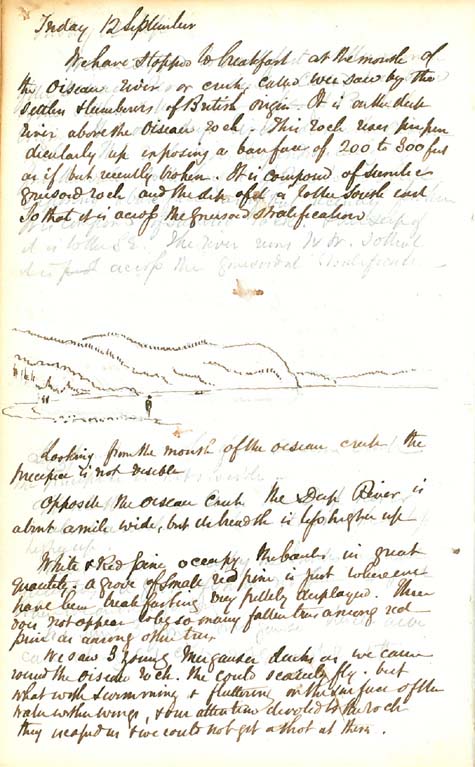 Friday 12 September
We have stopped to breakfast at the mouth of
the Oiseau River or creek, called Weesaw by the
settlers & lumberers of British origin. It is on the deep
river above the Oiseau rock. This rock rises perpen
dicularly up exposing a bare face of 200 to 300 feet
as if but recently broken. It is composed of
gneissoid rock and the dip of it is to the south east
So that it is across the gneissoid stratification
Looking from the mouth of the oiseau creek the
precipice is not visible
Opposite the Oiseau Creek the Deep River is
about a mile wide, but its breadth is less higher up
White & Red pine occupy the banks in great
quantity & a grove of small red pine is just where we
have been breakfasting very prettily displayed. There
does not appear to be so many fallen trees among red
pine as among other trees
We saw 3 young Merganser ducks as we came
round the Oiseau rock. They could scarcely fly. but
what with swimming & fluttering on the surface of the
water with their wings, & our attention devoted to the rock
they escaped us & we could not get a shot at them.